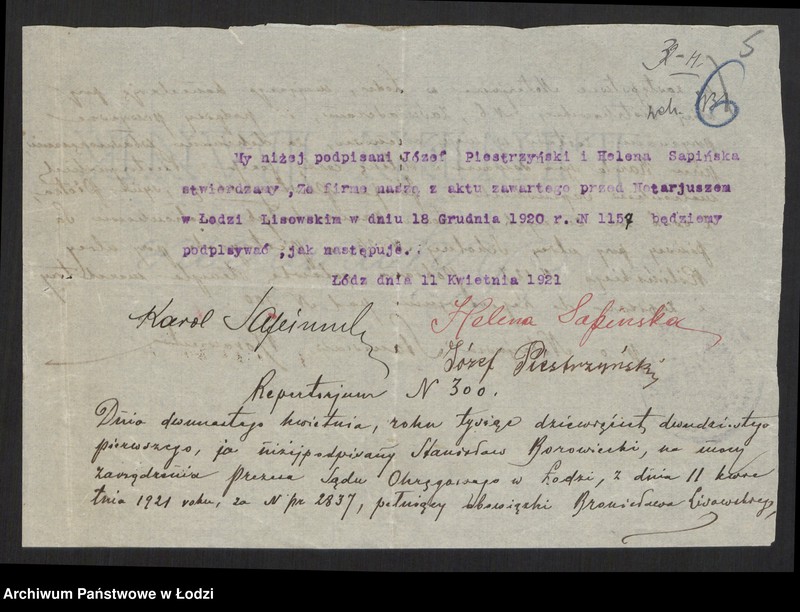 5
My niżej podpisani Józef Piestrzyński i Helena Sapińska
stwierdzamy ,Ze firmę naszą z aktu zawartego przed Notarjuszem
w Łodzi Lisowskim w dniu 18 Grudnia 1920 r. N 1157 będziemy
podplsywać ,jak następuje.
Łódz dnia 11 Kwietnia 1921
Karol
Helena Sapinska
Józef Piestrzyński
Repertorjum N 300.
Dnia dwunastego kwietnia, roku tysiąc dziewięćset dwudziestego
pierwszego, ja niżej podpisany Stanisław Borowiecki, na mocy
zarządzenia Prezesa Sądu Okręgowego w Łodzi, z dnia 11 kwie
tnia 1921 roku, za N pr 2837, pełniący obowiązki Bronisława Lisowskiego,
Archiwum Państwowe w Łodzi